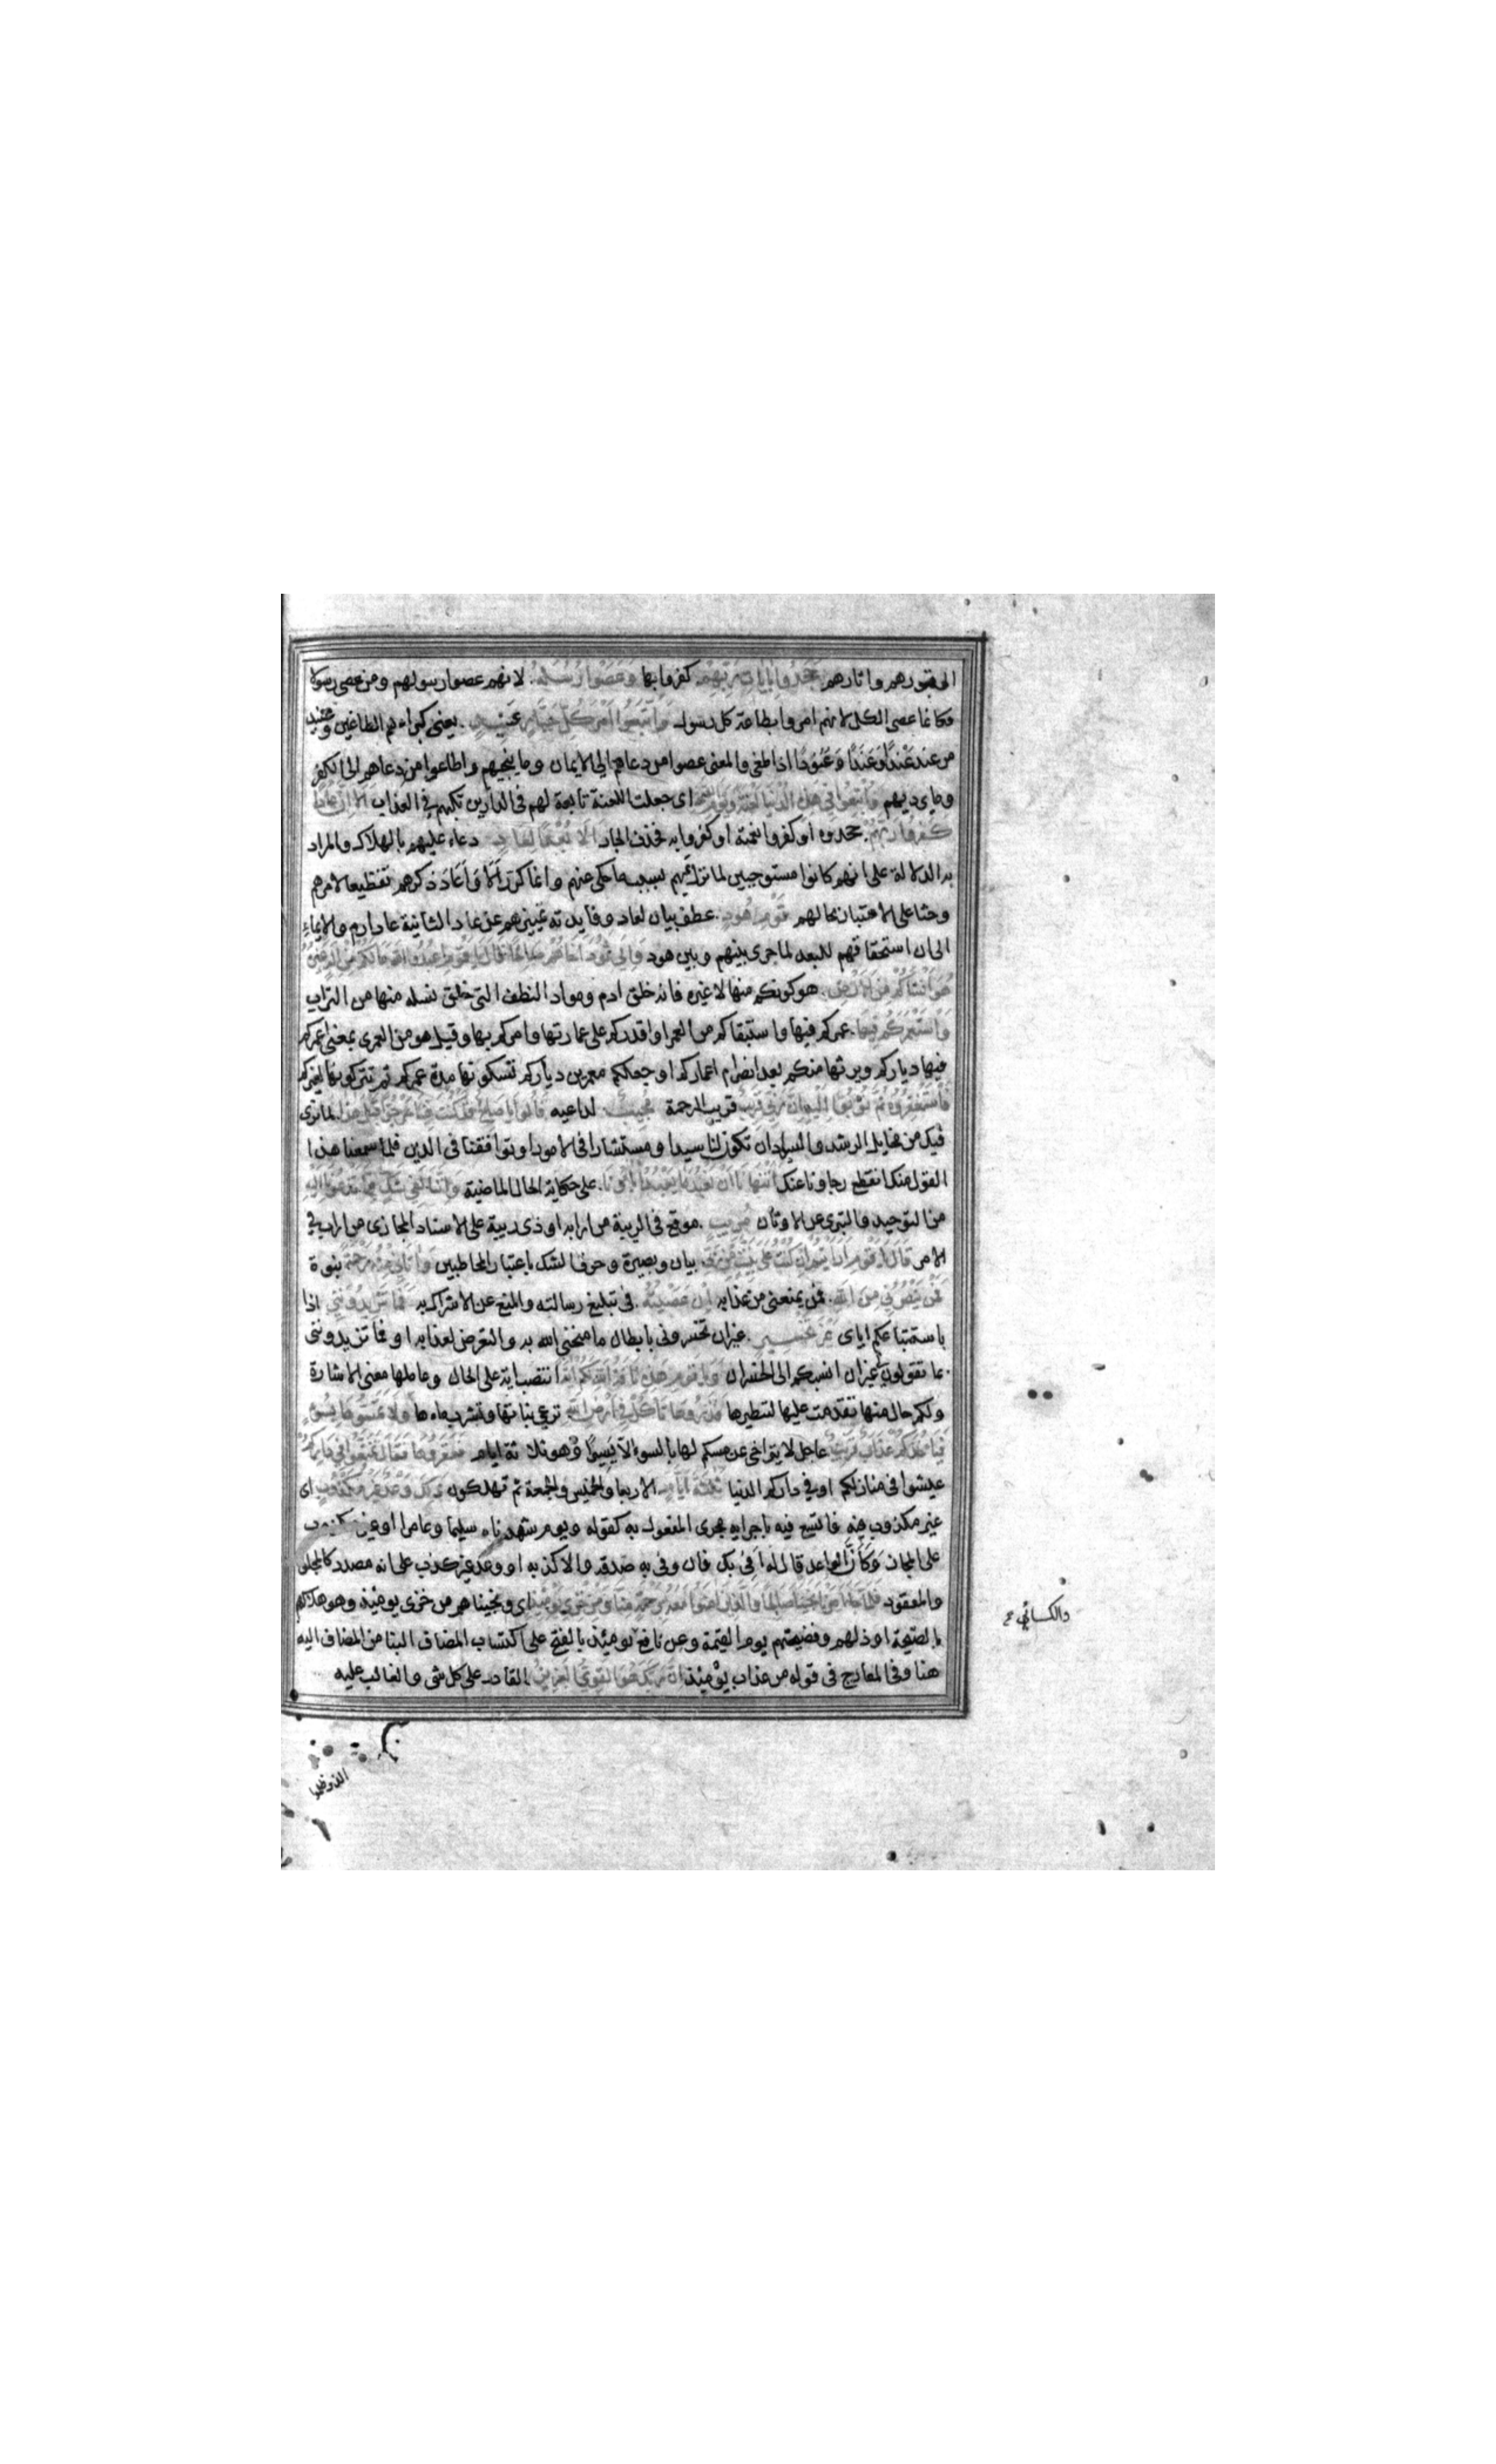 الى قبورهم واثارهم جحدوا بايات ربهم كفروا بها وعصوا رسله. لانهم عصوا رسولهم ومن عصى رسولا
فكانما عصى الكل لانهم امروا بطاعة كل رسول واتبعوا امر كل جبار عنيد. يعنى كبراءهم الطاغين وعنيد
من عند عَنْدًا وعَنَدًا وعُنُودًا اذا طغى والمعنى عصوا من دعاهم الى الايمان وما ينجيهم واطاعوا من دعاهم الى الكفر
وما يرديهم واتبعوا فى هذه الدنيا لعنة ويوم القيمة اى جعلت اللعنة تابعة لهم فى الدارين تكبهم فى العذاب الا ان عادا
كفروا ربهم. جحدوه او كفروا نعمته او كفروا به فحذف الجار الا بعدا لعاد دعاء عليهم بالهلاك والمراد
به الدلالة على انهم كانوا مستوجبين لما نزل عليهم بسبب ما حكى عنهم وانما كرر اَلَا وَاَعَادَ ذكرهم تفظيعا لامرهم
وحثا على الاعتبار بحالهم قوم هود. عطف بيان لعاد وفايدته تمييزهم عن عاد الثانية عاد ارم والايماء
الى ان استحقاقهم للبعد لما جرى بينهم وبين هود والى ثمود اخاهم صالحا قال يا قوم اعبدوا الله ما لكم من اله غيره
هو انشاكم من الارض. هو كونكم منها لا غيره فانه خلق ادم ومواد النطف التى خلق نسله منها من التراب
واستعمركم فيها. عمركم فيها واستبقاكم من العمر او اقدركم على عمارتها وامركم بها وقيل هو من العمرى بمعنى اعمركم
فيها دياركم ويرثها منكم بعد انصرام اعماركم او جعلكم معمرين دياركم تسكونها مدة عمركم ثم تتركونها لغيركم
فاستغفروه ثم توبوا اليه ان ربى قريب قريب الرحمة مجيب. لداعيه قالوا يا صالح قد كنت فينا مرجوا قبل هذا. لما نرى
فيك من مخايل الرشد والسداد ان تكون لنا سيدا ومستشارا فى الامور او توافقنا فى الدين فلما سمعنا هذا
القول منك انقطع رجاونا عنك اتنهانا ان نعبد ما يعبد اباؤنا. على حكاية الحال الماضية واننا لفى شك مما تدعونا اليه
من التوحيد والتبرى عن الاوثان مريب. موقع فى الريبة من ارابه او ذى ريبة على الاسناد المجازى من اراب فى
الامر قال يا قوم ارايتم ان كنت على بينة من ربى بيان وبصيرة وحرف الشك باعتبار المخاطبين واتانى منه رحمة نبوة
فمن ينصرنى من الله. فمن يمنعنى من عذابه ان عصيته. فى تبليغ رسالته والمنع عن الاشراك به فما تزيدوننى اذا
باستتباعكم اياى غير تخسير. غير ان تخسرونى بابطال ما منحنى الله به والتعرض لعذابه او فما تزيدوننى
بما تقولون لى غير ان انسبكم الى الخسران ويا قوم هذه ناقة الله لكم اية انتصب اية على الحال وعاملها معنى الاشارة
ولكم حال منها تقدمت عليها لتنكيرها فذروها تاكل فى ارض الله ترعى نباتها وتشرب ماءها ولا تمسوها بسوء
فياخذكم عذاب قريب. عاجل لا يتراخى عن مسكم لها بالسوء الا يسيرا وهو ثلاثة ايام فعقروها فقال تمتعوا فى داركم
عيشوا فى منازلكم او فى داركم الدنيا ثلثة ايام. الاربعا والخميس والجمعة ثم تهلكون ذلك وعد غير مكذوب اى
غير مكذوب فيه فاتسع فيه باجرايه مجرى المفعول به كقوله ويوم شهدناه سليما وعامرا او غير مكذوب
على المجاز وَكَاَنَّ الواعد قال له اَفِى بك فان وفى به صدقه والا كذبه او وعد غير كذب على انه مصدر كالمجلود
والمعقود فلما جاء امرنا نجينا صالحا والذين امنوا معه برحمة منا ومن خزى يومئذ اى ونجيناهم من خزى يومئذ وهو هلاكهم
بالصيحة او ذلهم وفضيحتهم يوم القيمة وعن نافع يومئذ بالفتح على اكتساب المضاف البنا من المضاف اليه
هنا وفى المعارج فى قوله من عذاب يومئذ ان ربك هو القوى العزيز. القادر على كل شى والغالب عليه
والكسائي